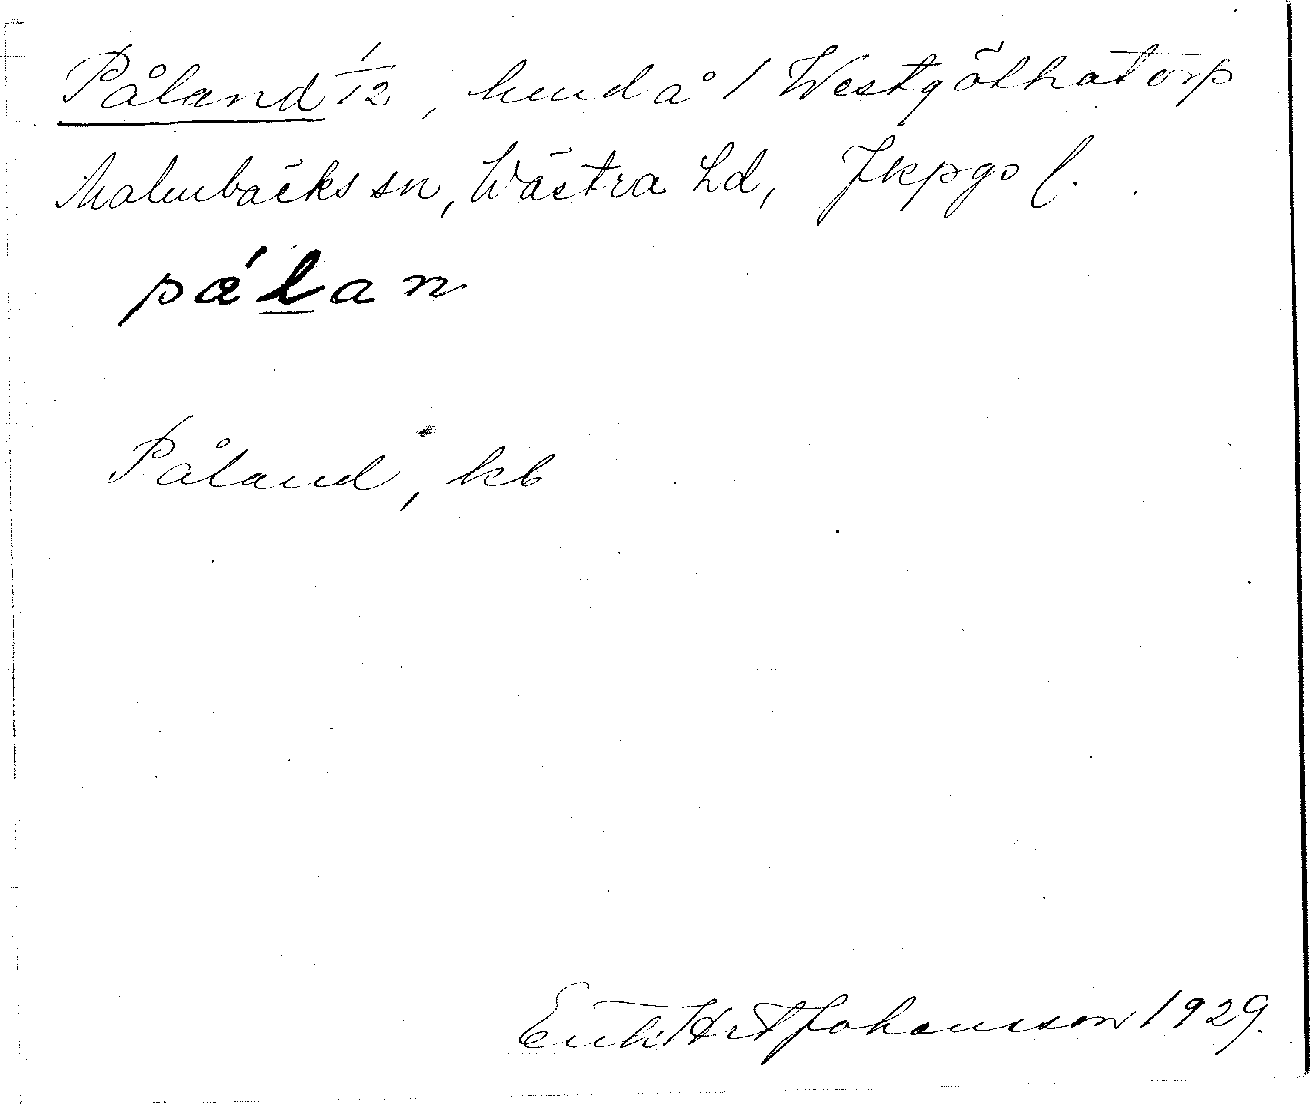 Påland 1/12, hmd å 1 Westgöthatorp
Malmbäcks sn, Wästra hd, Jkpgs l.
pålan
Påland, kb
Johansson 1929.